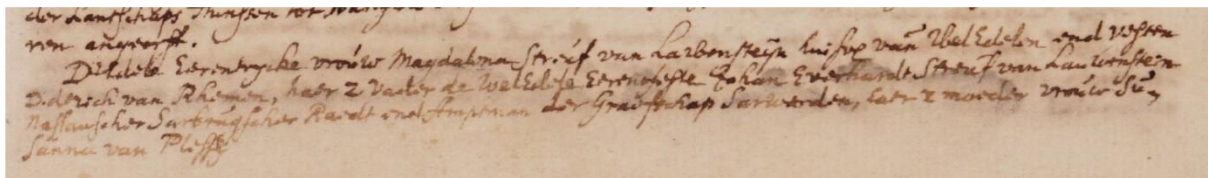 der Lantschaps Munssen tot
ren angeerft.
D'Edele Eerenrycke vrouw Magdalena Streuf van Larbensteyn huisvr van Wel Edelen end vesten
Diderich van Rhemen, haer 2 Vader de Wel Edele Eerenveste Johan Everhardt Streuf van Lauwenstein
Nassauscher Sarbrugscher Raedt end Amptman der Graefschap Sarwerden, haer 2 moeder vrouw Su,
sanna van Plesse